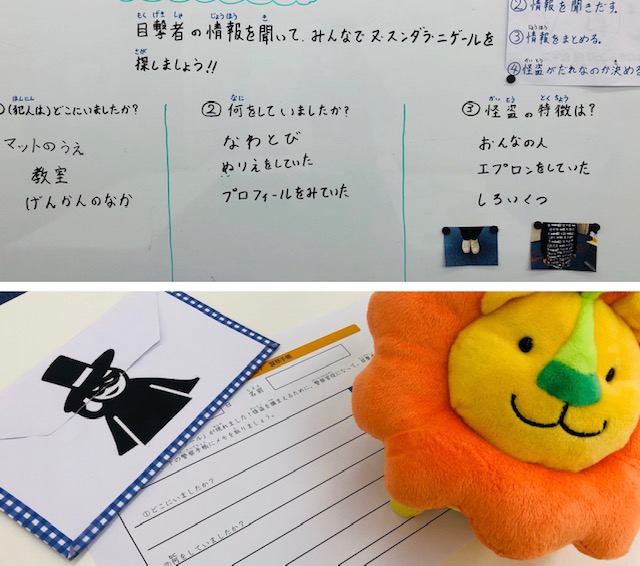 目撃者の情報を聞いて、みんなでヌ・スンダラ・ニゲールを
探しましょう!!
②情報を聞きだす。
③情報をまとめる。
④怪盗がだれなのか決める
①(犯人は)どこにいましたか?
マットのうえ
教室
げんかんのなか
②何をしていましたか?
なわとび
ぬりえをしていた
プロフィールをみていた
③怪盗の特徴は?
おんなの人
エプロンをしていた
しろいくつ
①どこにいましたか?
②何をしていましたか?